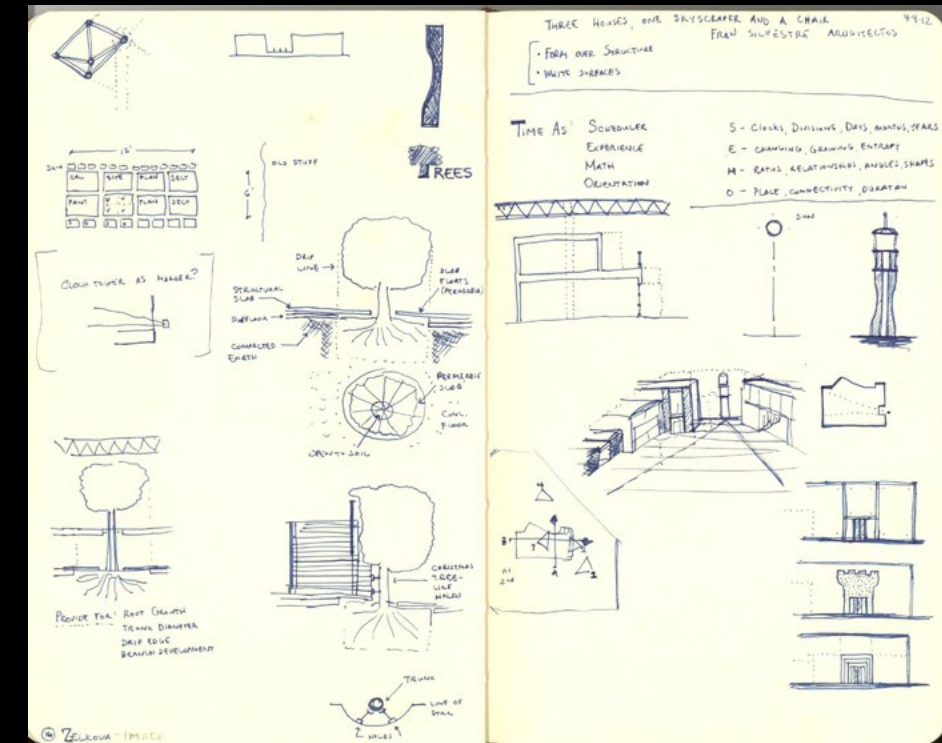 12'
OLD STUFF
TREES
6'
SITE PLAN SECT
PLAN SECT
DRIP
LINE
CLOCK TOWER AS MARKER?
STRUCTURAL
SLAB
SUBFLOOR
COMPACTED
EARTH
SLAB
FLOATS
(PERMEABLE)
PERMEABLE
SLAB
CONC.
FLOOR
OPEN TO SOIL
PROVIDE FOR: ROOT GROWTH
TRUNK DIAMETER
DRIP EDGE
BRANCH DEVELOPMENT
CHRISTMAS
TREE-
LIKE
HOLES
TRUNK
LINE OF
2
HOLES
ZELKOVA - IMAGE
THREE HOUSES, ONE SKYSCRAPER AND A CHAIR
FRAN SILVESTRE ARQUITECTOS
• FORM OVER STRUCTURE
• WHITE SURFACES
TIME AS: SCHEDULER
EXPERIENCE
MATH
ORIENTATION
S - CLOCKS, DIVISIONS, DAYS, MONTHS, YEARS
E - CHANGING, GROWING, ENTROPY
M - RATIOS, RELATIONSHIPS, ANGLES, SHAPES
O - PLACE, CONNECTIVITY, DURATION
SUN